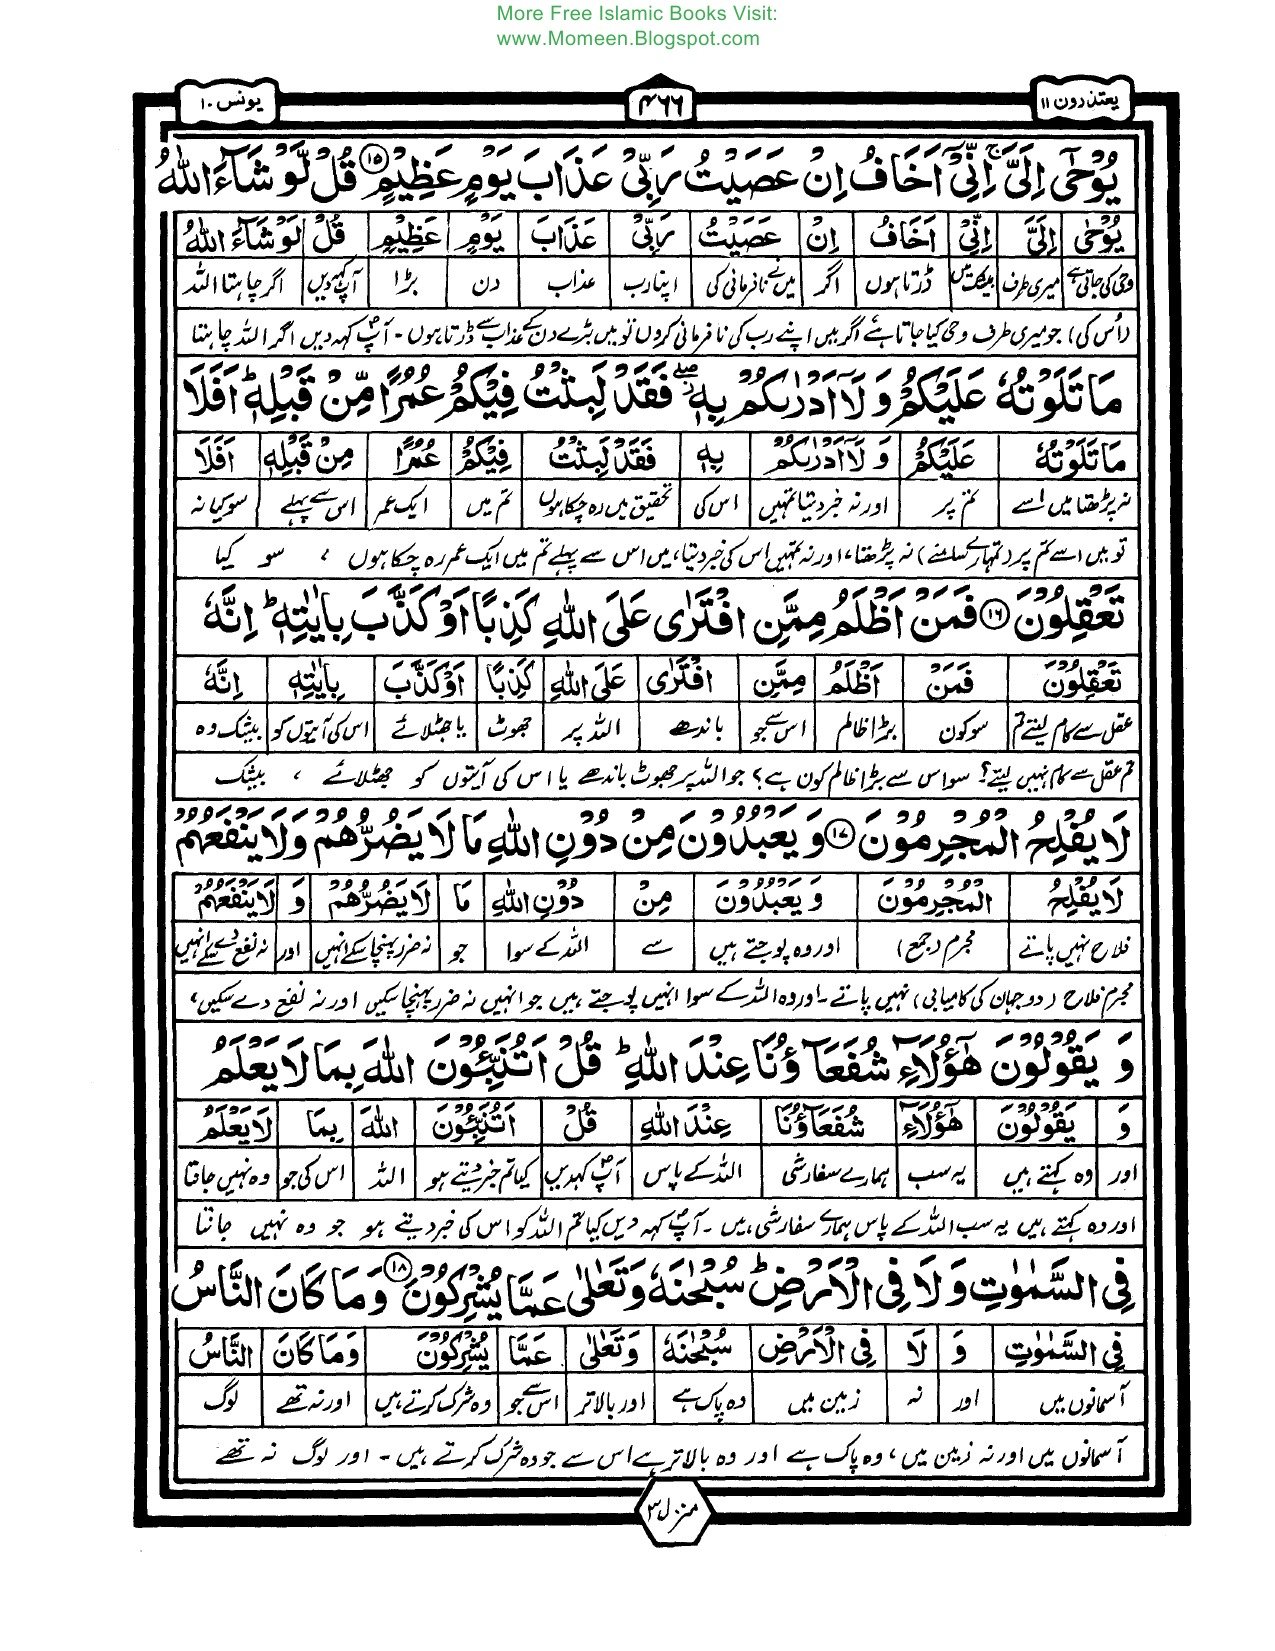 More Free Islamic Books Visit:
www.Momeen.Blogspot.com
یعتذرون ۱۱ ۴۶۶ یونس ۱۰
يُوْحٰٓى اِلَىَّ ۚ اِنِّىْٓ اَخَافُ اِنْ عَصَيْتُ رَبِّىْ عَذَابَ يَوْمٍ عَظِيْمٍ ۝۱۵ قُلْ لَّوْ شَآءَ اللّٰهُ
يُوْحٰٓى اِلَىَّ اِنِّىْٓ اَخَافُ اِنْ عَصَيْتُ رَبِّىْ عَذَابَ يَوْمٍ عَظِيْمٍ قُلْ لَوْ شَآءَ اللّٰهُ
وحی کی جاتی ہے میری طرف بیشک میں ڈرتا ہوں اگر میں نے نافرمانی کی اپنا رب عذاب دن بڑا آپ کہدیں اگر چاہتا اللہ
(اُس کی) جو میری طرف وحی کیا جاتا ہے اگر میں اپنے رب کی نافرمانی کروں تو میں بڑے دن کے عذاب سے ڈرتا ہوں - آپؐ کہہ دیں اگر اللہ چاہتا
مَا تَلَوْتُهٗ عَلَيْكُمْ وَلَآ اَدْرٰىكُمْ بِهٖ ۖ فَقَدْ لَبِثْتُ فِيْكُمْ عُمُرًا مِّنْ قَبْلِهٖ ۭ اَفَلَا
مَا تَلَوْتُهٗ عَلَيْكُمْ وَلَآ اَدْرٰىكُمْ بِهٖ فَقَدْ لَبِثْتُ فِيْكُمْ عُمُرًا مِنْ قَبْلِهٖ اَفَلَا
نہ پڑھتا میں اسے تم پر اور نہ خبر دیتا تمہیں اس کی تحقیق میں رہ چکا ہوں تم میں ایک عمر اس سے پہلے سو کیا نہ
تو میں اسے تم پر (تمہارے سامنے) نہ پڑھتا، اور نہ تمہیں اس کی خبر دیتا، میں اس سے پہلے تم میں ایک عمر رہ چکا ہوں ، سو کیا
تَعْقِلُوْنَ ۝۱۶ فَمَنْ اَظْلَمُ مِمَّنِ افْتَرٰى عَلَى اللّٰهِ كَذِبًا اَوْ كَذَّبَ بِاٰيٰتِهٖ ۭ اِنَّهٗ
تَعْقِلُوْنَ فَمَنْ اَظْلَمُ مِمَّنِ افْتَرٰى عَلَى اللّٰهِ كَذِبًا اَوْ كَذَّبَ بِاٰيٰتِهٖ اِنَّهٗ
عقل سے کام لیتے تم سو کون بڑا ظالم اس سے جو باندھے اللہ پر جھوٹ یا جھٹلائے اس کی آیتوں کو بیشک وہ
تم عقل سے کام نہیں لیتے؟ سو اس سے بڑا ظالم کون ہے؟ جو اللہ پر جھوٹ باندھے یا اس کی آیتوں کو جھٹلائے ، بیشک
لَا يُفْلِحُ الْمُجْرِمُوْنَ ۝۱۷ وَيَعْبُدُوْنَ مِنْ دُوْنِ اللّٰهِ مَا لَا يَضُرُّهُمْ وَلَا يَنْفَعُهُمْ
لَا يُفْلِحُ الْمُجْرِمُوْنَ وَيَعْبُدُوْنَ مِنْ دُوْنِ اللّٰهِ مَا لَا يَضُرُّهُمْ وَ لَا يَنْفَعُهُمْ
فلاح نہیں پاتے مجرم (جمع) اور وہ پوجتے ہیں سے اللہ کے سوا جو نہ ضرر پہنچا سکے انہیں اور نہ نفع دے سکے انہیں
مجرم فلاح (دو جہان کی کامیابی) نہیں پاتے - اور وہ اللہ کے سوا انہیں پوجتے ہیں جو انہیں نہ ضرر پہنچا سکیں اور نہ نفع دے سکیں،
وَيَقُوْلُوْنَ هٰٓؤُلَآءِ شُفَعَآؤُنَا عِنْدَ اللّٰهِ ۭ قُلْ اَتُنَبِّـــُٔوْنَ اللّٰهَ بِمَا لَا يَعْلَمُ
وَ يَقُوْلُوْنَ هٰٓؤُلَآءِ شُفَعَآؤُنَا عِنْدَ اللّٰهِ قُلْ اَتُنَبِّـُٔوْنَ اللّٰهَ بِمَا لَا يَعْلَمُ
اور وہ کہتے ہیں یہ سب ہمارے سفارشی اللہ کے پاس آپؐ کہدیں کیا تم خبر دیتے ہو اللہ اس کی جو وہ نہیں جانتا
اور وہ کہتے ہیں یہ سب اللہ کے پاس ہمارے سفارشی ہیں - آپؐ کہہ دیں کیا تم اللہ کو اس کی خبر دیتے ہو جو وہ نہیں جانتا
فِى السَّمٰوٰتِ وَلَا فِى الْاَرْضِ ۭ سُبْحٰنَهٗ وَتَعٰلٰى عَمَّا يُشْرِكُوْنَ ۝۱۸ وَمَا كَانَ النَّاسُ
فِى السَّمٰوٰتِ وَ لَا فِى الْاَرْضِ سُبْحٰنَهٗ وَتَعٰلٰى عَمَّا يُشْرِكُوْنَ وَمَا كَانَ النَّاسُ
آسمانوں میں اور نہ زمین میں وہ پاک ہے اور بالاتر اس سے جو وہ شرک کرتے ہیں اور نہ تھے لوگ
آسمانوں میں اور نہ زمین میں، وہ پاک ہے اور وہ بالاتر ہے اس سے جو وہ شرک کرتے ہیں - اور لوگ نہ تھے
منزل ۳